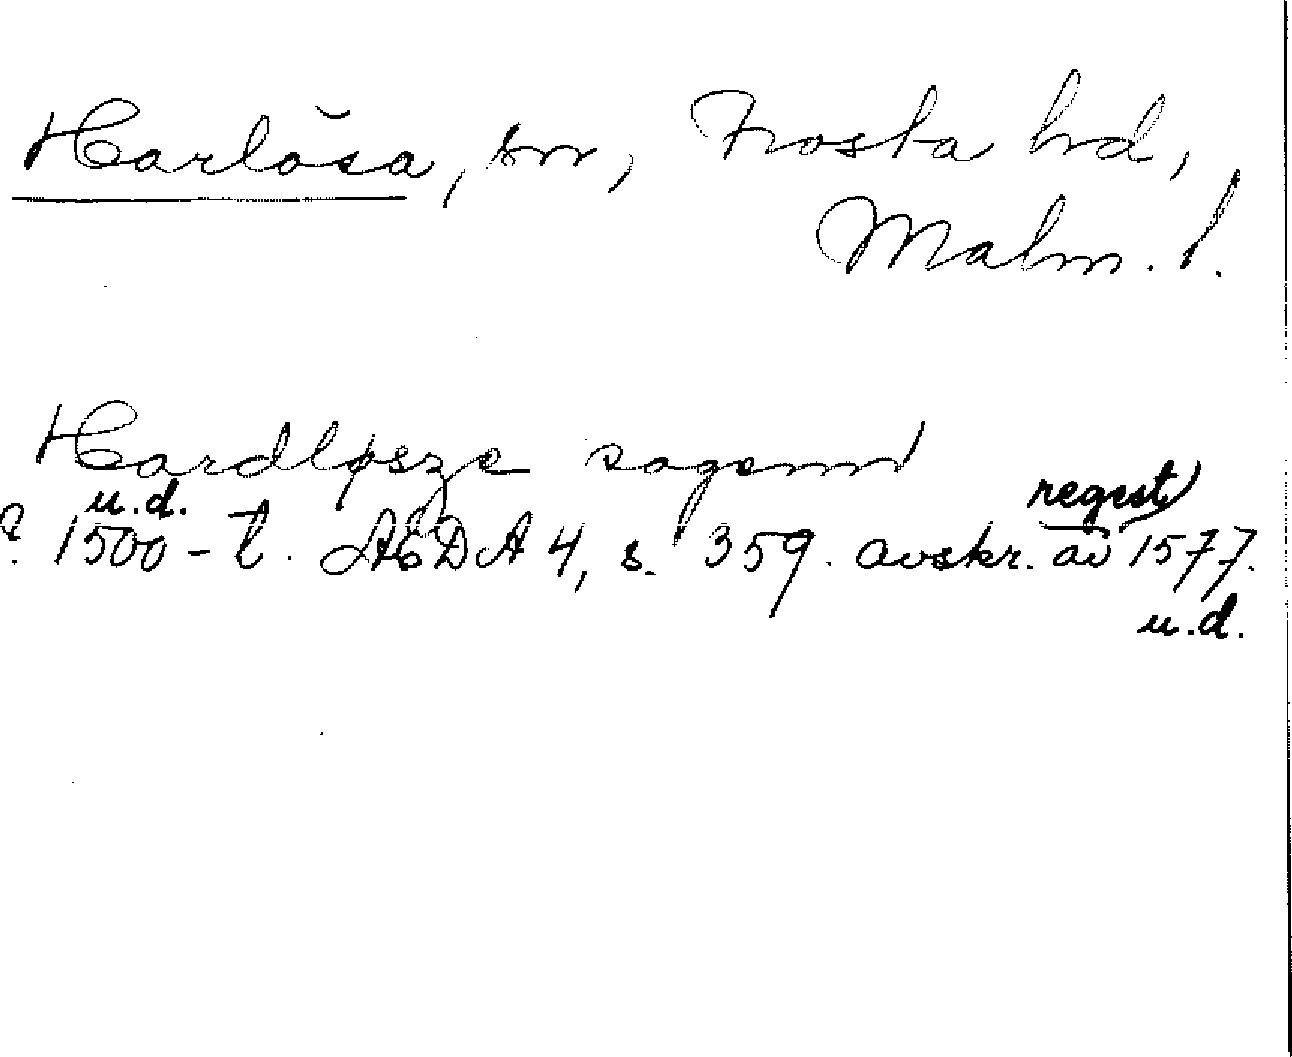 Harlösa, sn, Frosta hd,
Malm. l.
Hardløsze sogenn
u.d. regest
? 1500-t. ÆDA 4, s. 359. avskr. av 1577.
u.d.